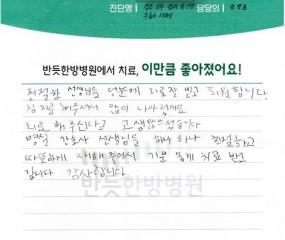 진단명
담당의
반듯한방병원에서 치료, 이만큼 좋아졌어요!
친절한 선생님들 덕분에 치료 잘 받고 퇴원합니다
침 치료 해주셔서 많이 나아졌어요
치료 해주신다고 고생많으셨습니다
병실 간호사 선생님들 하나 하나 친절하고
따뜻하게 대해 주어서 기분 좋게 치료 받고
갑니다 감사합니다
반듯한방병원